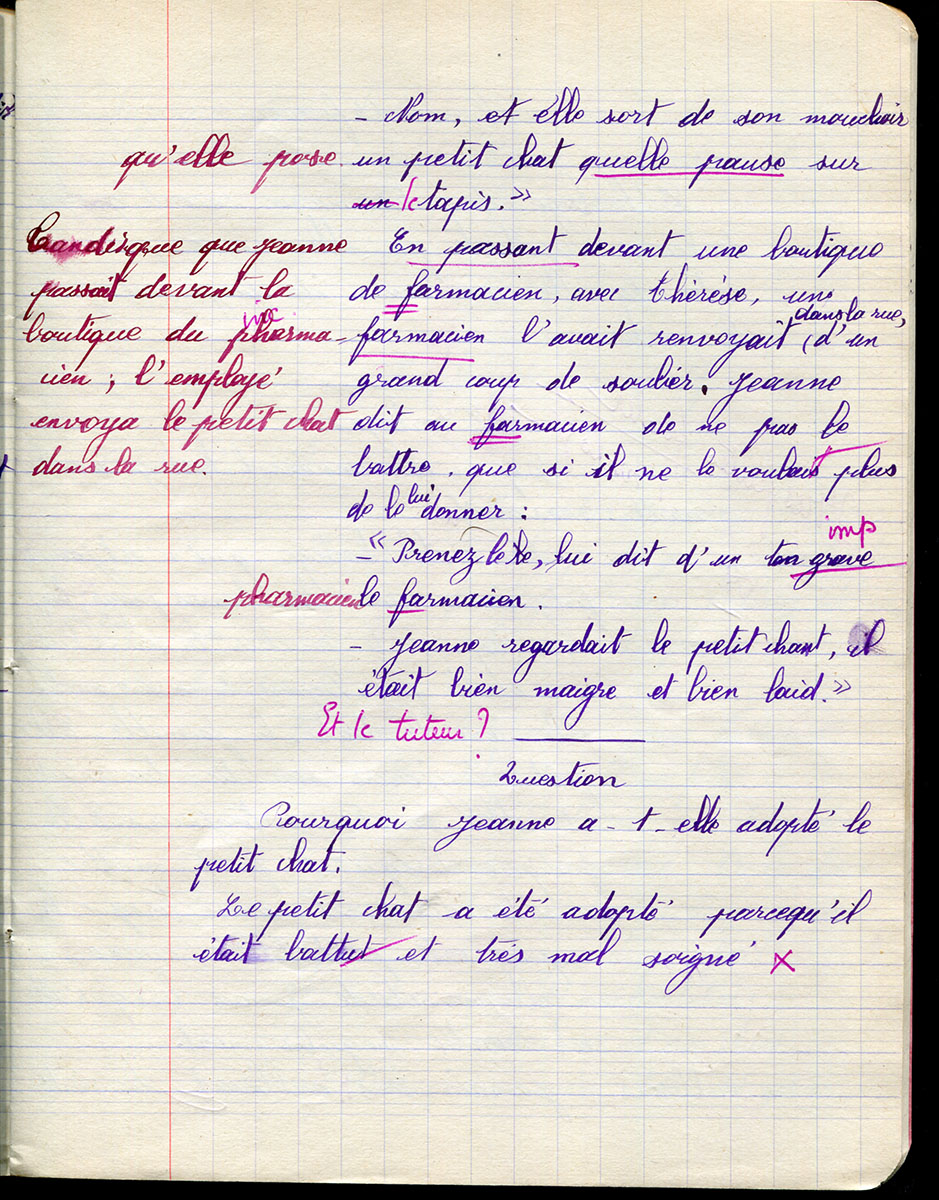 - Nom, et elle sort de son mouchoir
qu'elle pose un petit chat quelle pause sur
un le tapis. »
Tandisque que Jeanne En passant devant une boutique
passait devant la de farmacien, avec thérèse, une
dans la rue,
boutique du pharma- farmacien l'avait renvoyait (d'un
cien ; l'employé grand coup de soulier. Jeanne
envoya le petit chat dit au farmacien de ne pas le
dans la rue. battre, que si il ne le voulait plus
de le lui donner :
imp
- « Prenez le, lui dit d'un ton grave
pharmacien le farmacien.
- Jeanne regardait le petit chant, il
était bien maigre et bien laid. »
Et le tuteur ?
Question
Pourquoi Jeanne a-t-elle adopté le
petit chat.
Le petit chat a été adopté parcequ'il
était battut et très mal soigné x